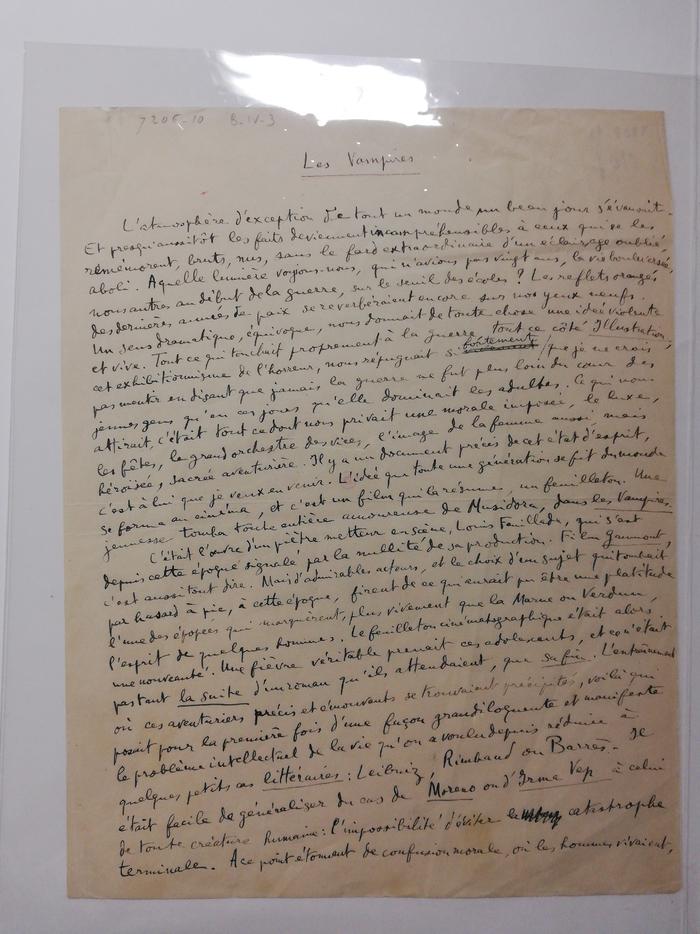 7206-10 B-IV-3
Les Vampires
L'atmosphère d'exception de tout un monde un beau jour s'évanouit.
Et presqu'aussitôt les faits deviennent incompréhensibles à ceux qui se les
remémorent, bruts, nus, sans le fard extraordinaire d'un éclairage oublié,
aboli. A quelle lumière voyions-nous, qui n'avions pas vingt ans, la vie bouleversée,
nous autres au début de la guerre, sur le seuil des écoles ? Les reflets orangés
des dernières années de paix se reverbéraient encore sur nos yeux neufs.
Un sens dramatique, équivoque, nous donnait de toute chose une idée violente
et vive. Tout ce qui touchait proprement à la guerre, tout ce côté Illustration,
cet exhibitionnisme de l'horreur, nous répugnait si fortement que je ne crois
pas mentir en disant que jamais la guerre ne fut plus loin du cœur des
jeunes gens qu'en ces jours qu'elle dominait les adultes. Ce qui nous
attirait, c'était tout ce dont nous privait une morale imposée, le luxe,
les fêtes, le grand orchestre des vices, l'image de la femme aussi, mais
héroïsée, sacrée aventurière. Il y a un document précis de cet état d'esprit,
c'est à lui que je veux en venir. L'idée que toute une génération se fit du monde
se forma au cinéma, et c'est un film qui la résume, un feuilleton. Une
jeunesse tomba toute entière amoureuse de Musidora, dans les Vampires.
C'était l'œuvre d'un piètre metteur en scène, Louis Feuillade, qui s'est
depuis cette époque signalé par la nullité de sa production. Film Gaumont,
c'est aussi tout dire. Mais d'admirables acteurs, et le choix d'un sujet qui tombait
par hasard à pic, à cette époque, firent de ce qui aurait pu être une platitude
l'une des épopées qui marquèrent, plus vivement que la Marne ou Verdun,
l'esprit de quelques hommes. Le feuilleton cinématographique était alors
une nouveauté. Une fièvre véritable prenait ces adolescents, et ce n'était
pas tant la suite d'un roman qu'ils attendaient, que sa fin. L'entraînement
où ces aventuriers précis et émouvants se trouvaient précipités, voilà qui
posait pour la première fois d'une façon grandiloquente et manifeste
le problème intellectuel de la vie qu'on a voulu depuis réduire à
quelques petits cas littéraires : Leibniz, Rimbaud ou Barrès. Il
était facile de généraliser du cas de Moreno ou d'Irma Vep à celui
de toute créature humaine : l'impossibilité d'éviter la catastrophe
terminale. A ce point étonnant de confusion morale, où les hommes vivaient,